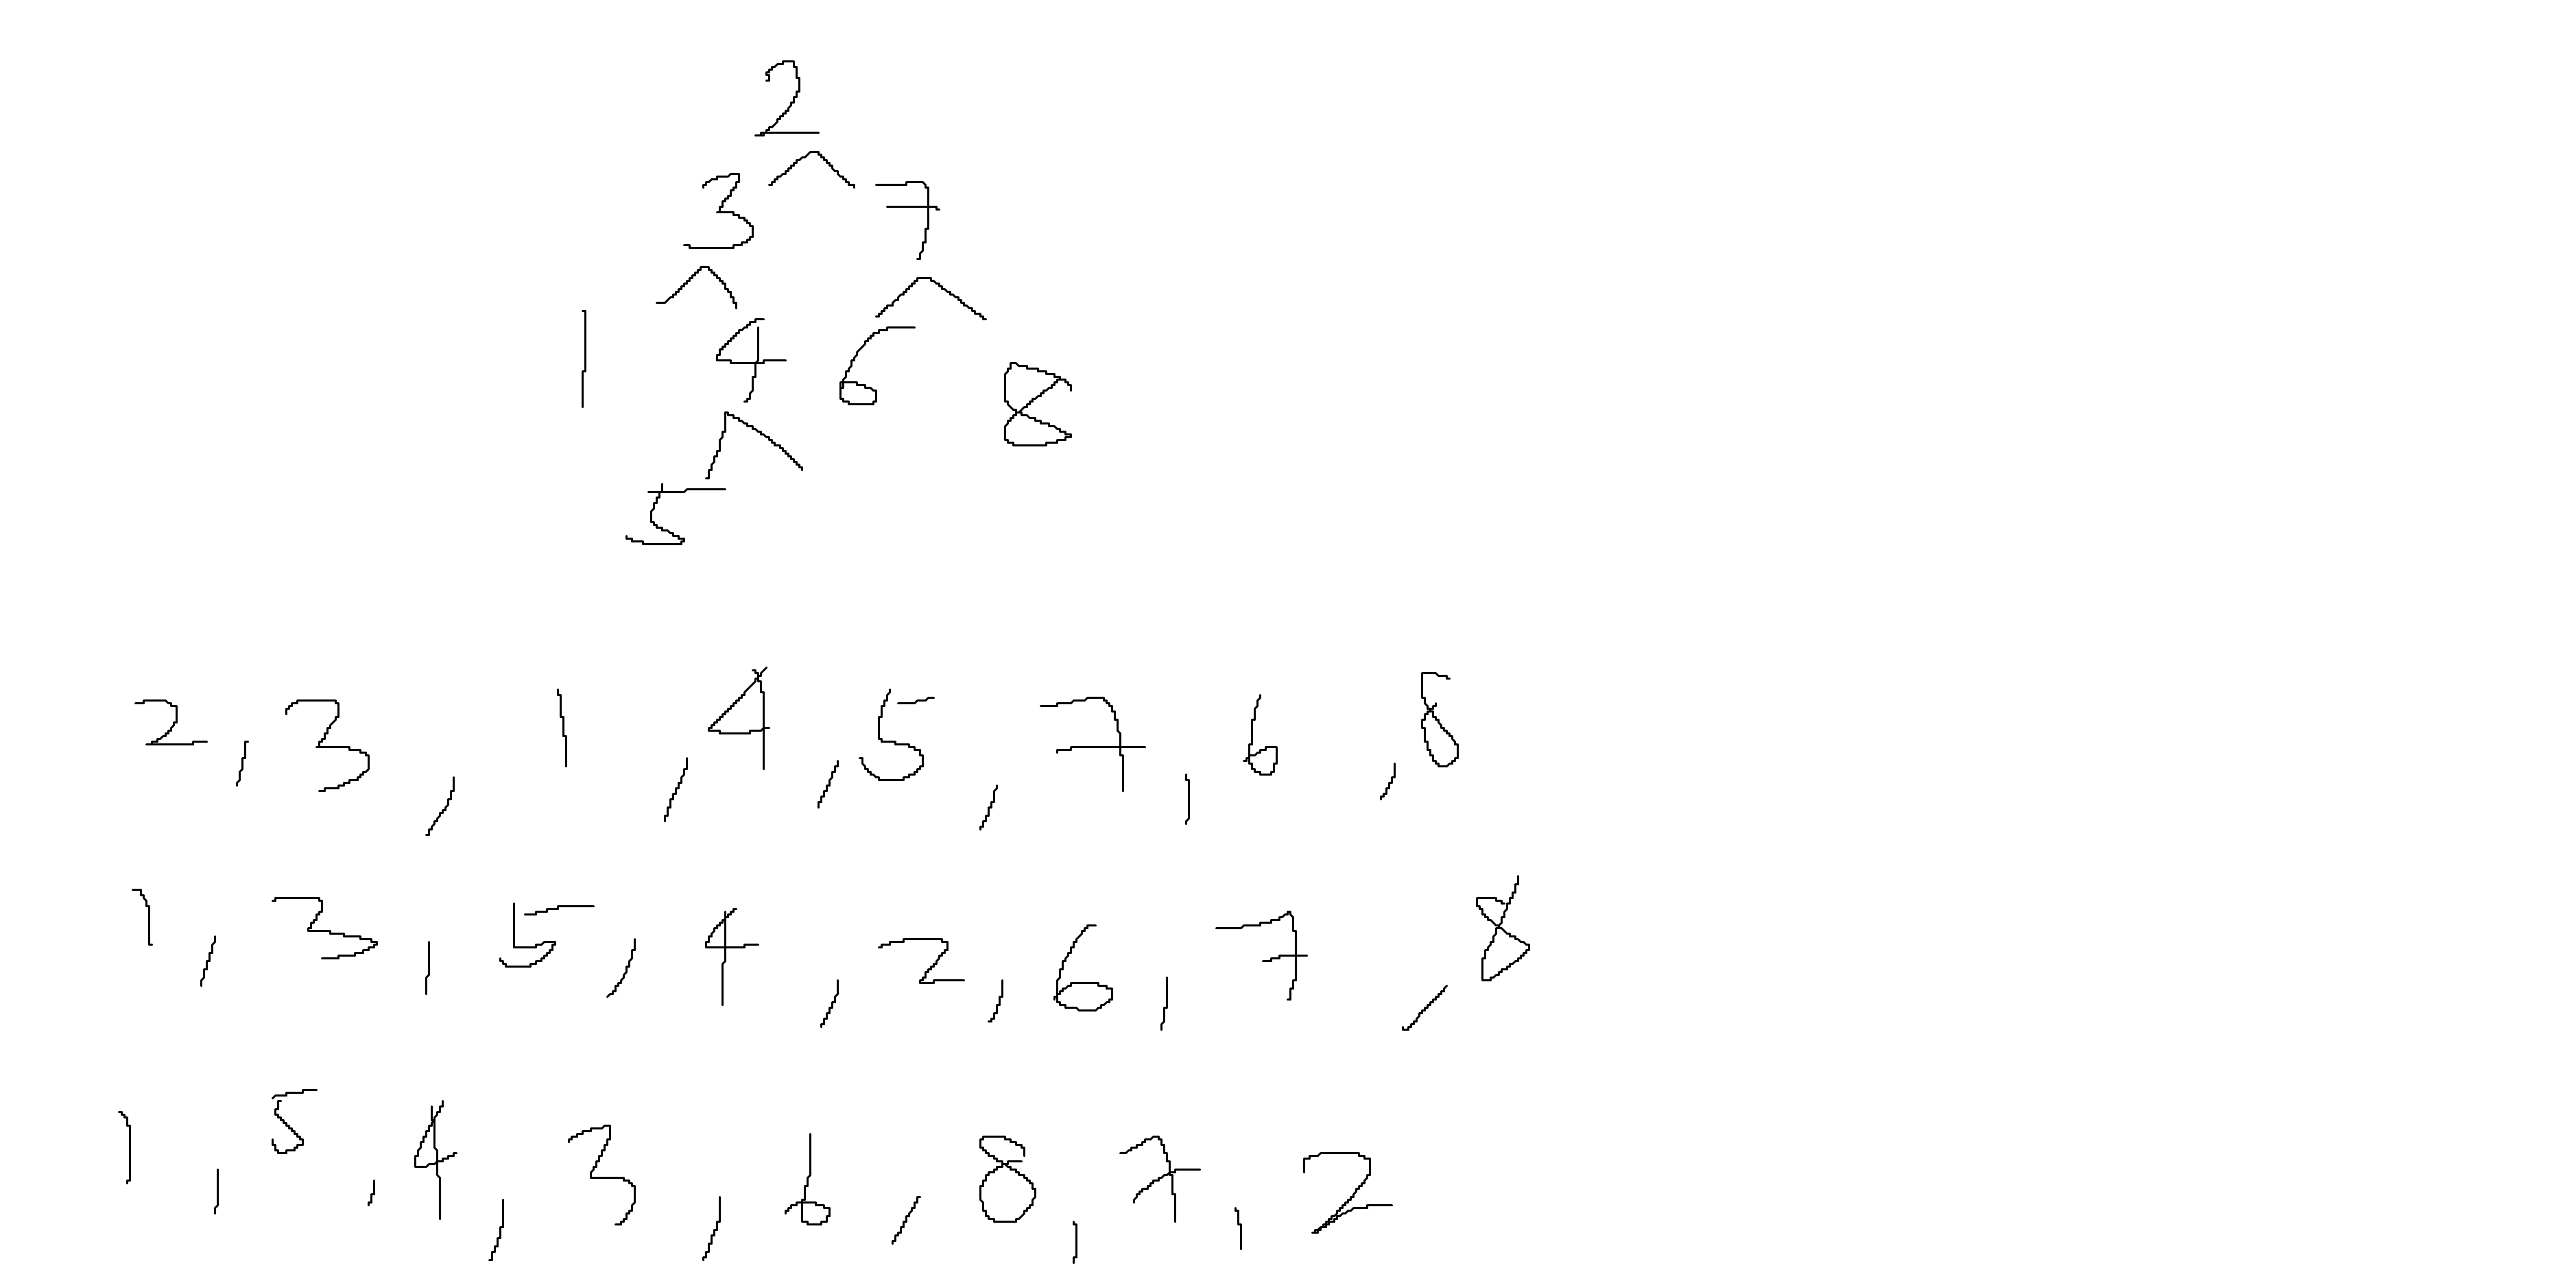 2
3 7
1 4 6 8
5
2, 3, 1, 4, 5, 7, 6, 8
1, 3, 5, 4, 2, 6, 7, 8
1, 5, 4, 3, 6, 8, 7, 2